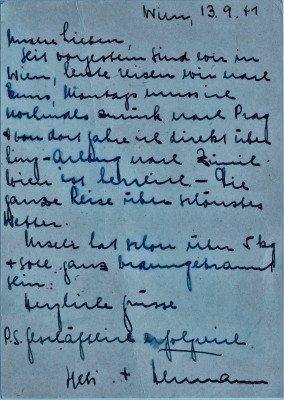 Wien, 13.9.41
Unsere lieben,
Seit vorgestern sind wir in
Wien, heute reisen wir nach
Montags muss ich
nochmals zurück nach Prag
+ von dort fahre ich direkt über
Linz-Arlberg nach Zürich.
Wien ist herrlich – Die
ganze Reise über schönstes
Wetter.
hat schon über 5 kg
+ soll ganz braungebrannt
sein.
Herzliche Grüsse
P.S. Geschäftlich erfolgreich.
Hebi + Hermann